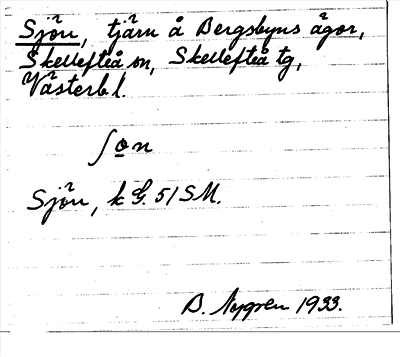 Sjön, tjärn å Bergsbyns ägor,
Skellefteå sn, Skellefteå tg,
Västerb l.
ʃo̲n
Sjön, k G. 51 SM.
B. Nygren 1933.